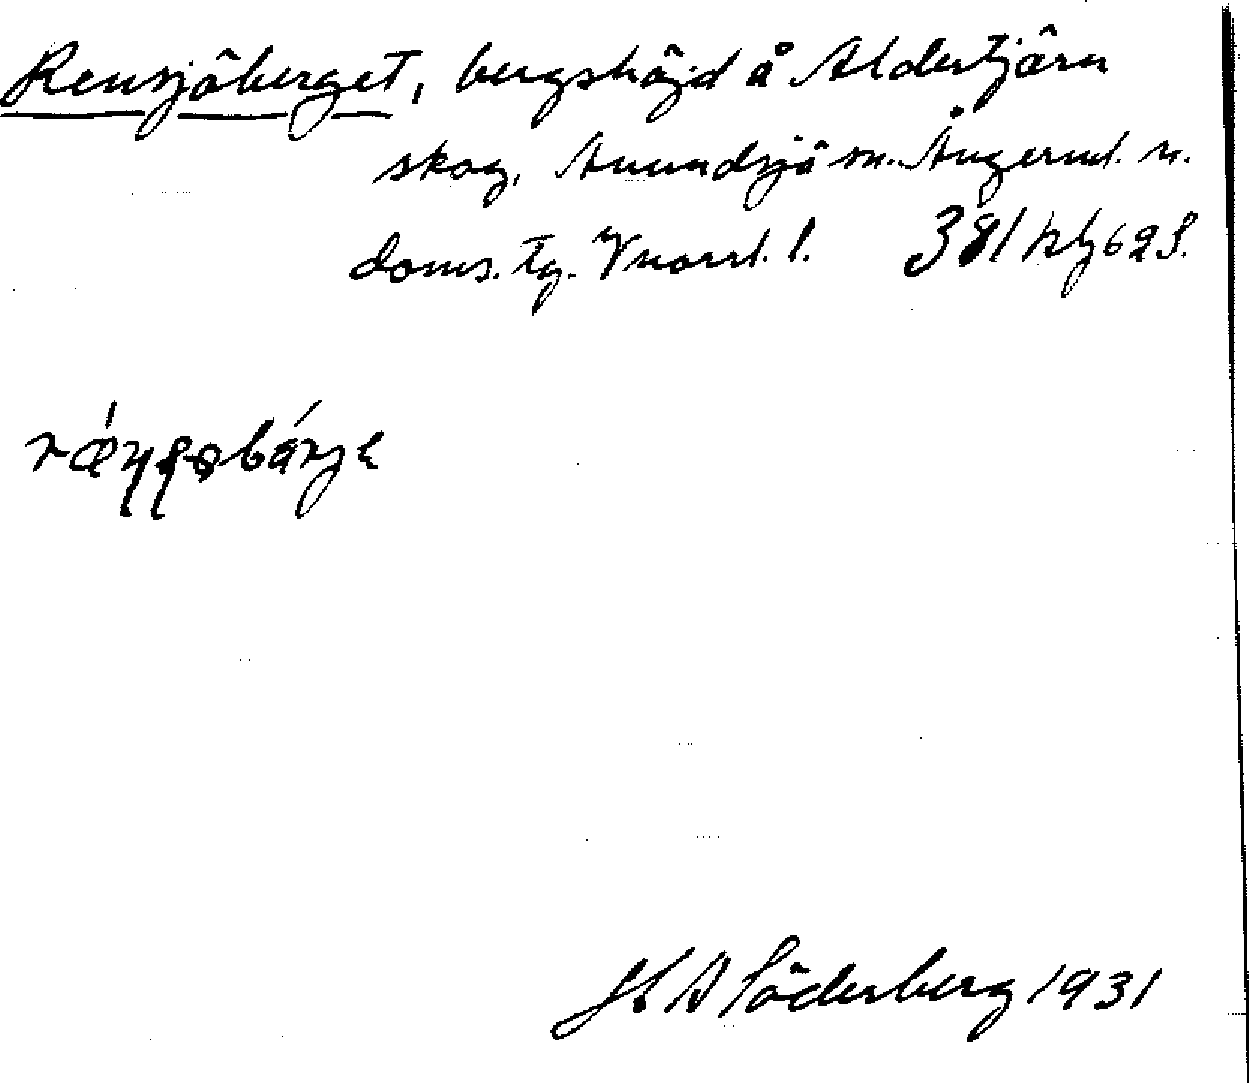 Rensjöberget, bergshöjd å Aldertjärn
skog, Anundsjö sn. Ångerml. n.
doms. tg. Vnorrl. l. 381 62
K A Söderberg 1931